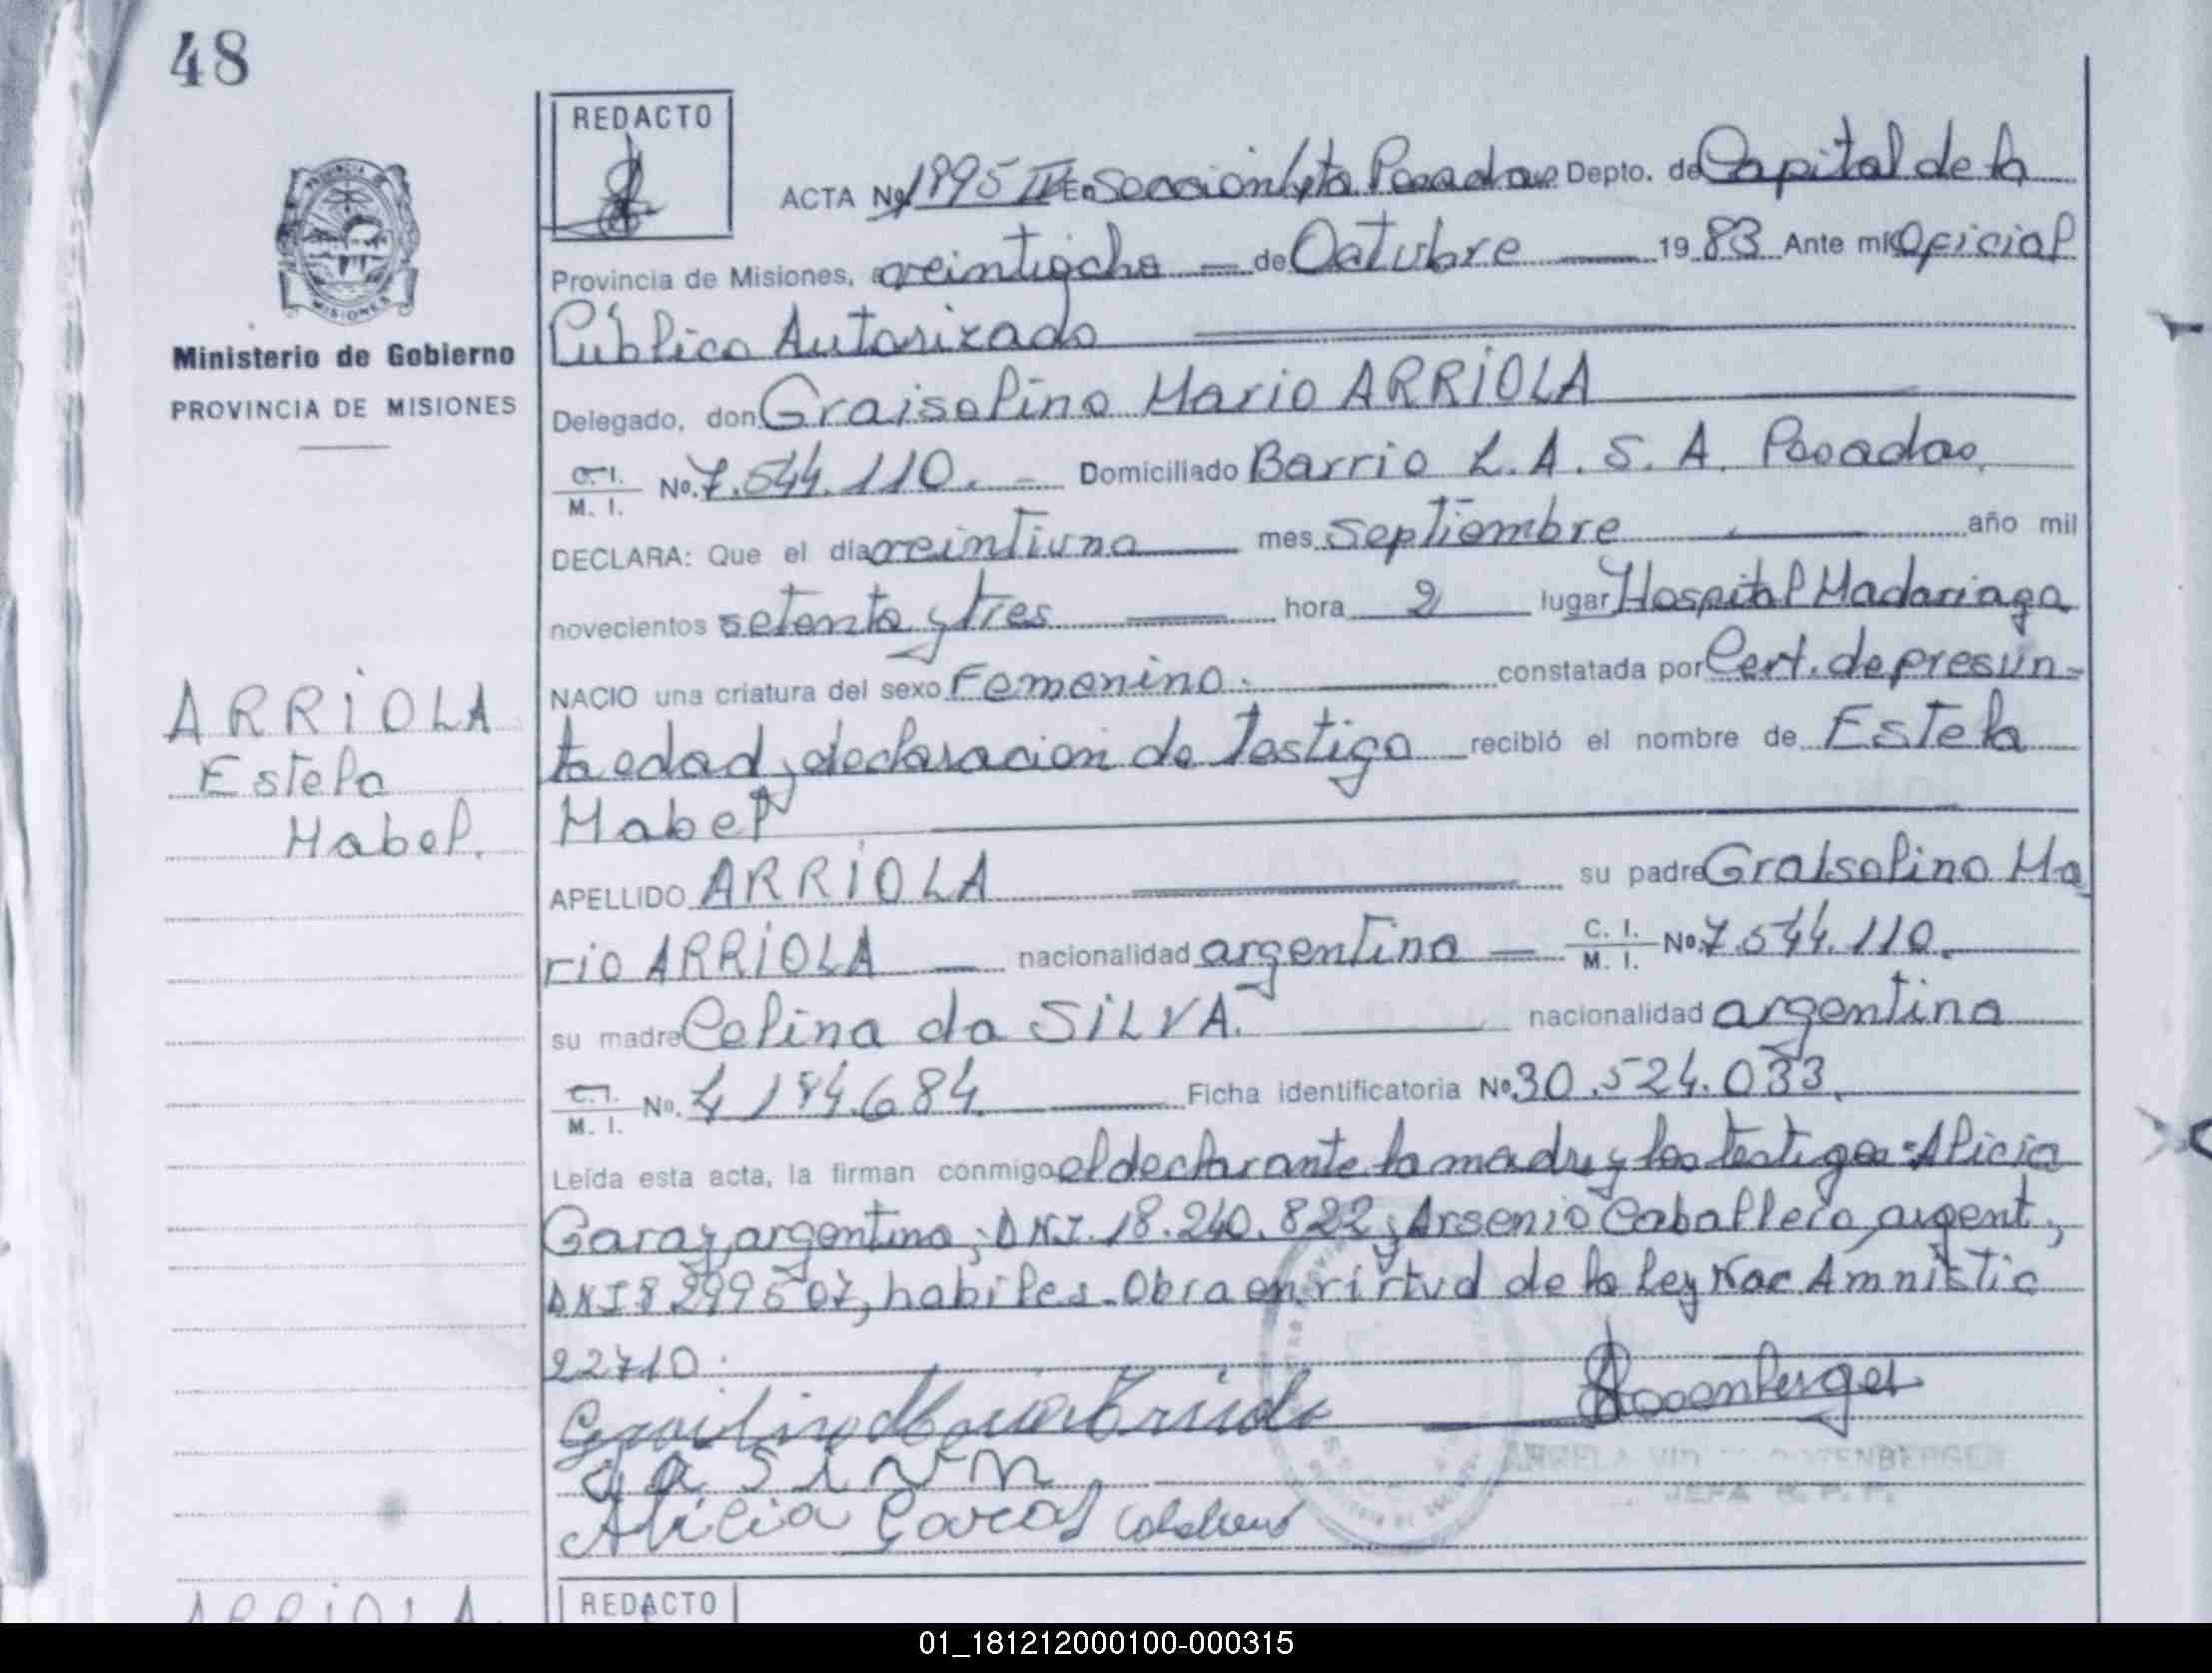 48
REDACTO
ACTA Nº 1995 IV En Sección 4ta Posadas Depto. de Capital de la
Provincia de Misiones, a veintiocho — de Octubre — 1983 Ante mi Oficial
Público Autorizado
Ministerio de Gobierno
PROVINCIA DE MISIONES
Delegado, don Graisolino Mario ARRIOLA
C. I. / M. I. No. 7.544.110. - Domiciliado Barrio L.A.S.A. Posadas
DECLARA: Que el día veintiuno mes septiembre año mil
novecientos setenta y tres hora 2 lugar Hospital Madariaga
NACIO una criatura del sexo Femenino. constatada por Cert. de presun-
ta edad, declaracion de Testigo recibió el nombre de Estela
Mabel
ARRIOLA
Estela
Mabel.
APELLIDO ARRIOLA su padre Graisolino Ma
rio ARRIOLA — nacionalidad argentina — C. I. / M. I. No. 7.544.110.
su madre Celina da SILVA. nacionalidad argentina
C. I. / M. I. No. 4.184.684. Ficha identificatoria Nº 30.524.033.
Leída esta acta, la firman conmigo el declarante la madre y los testigos: Alicia
Garay, argentina, DNI. 18.240.822 y Arsenio Caballero, argent,
DNI 8299507, habiles. Obra en virtud de la Ley Nac Amnistia
22710.
Rosenberger
da SiLVA
Alicia Garay Caballero
JEFA R. P. P.
ARRIOLA
REDACTO
01_181212000100-000315